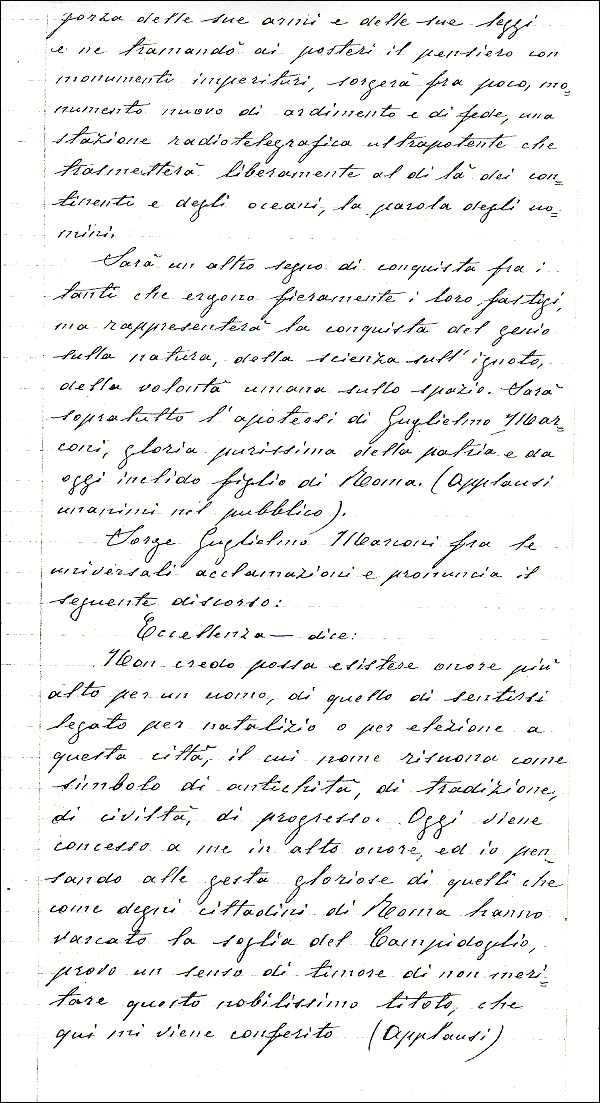 forza delle sue armi e delle sue leggi
e ne tramandò ai posteri il pensiero con
monumenti imperituri, sorgerà fra poco, mo=
numento nuovo di ardimento e di fede, una
stazione radiotelegrafica ultrapotente che
trasmetterà liberamente al di là dei con=
tinenti e degli oceani, la parola degli uo=
mini.
Sarà un altro segno di conquista fra i
tanti che ergono fieramente i loro fastigi,
ma rappresenterà la conquista del genio
sulla natura, della scienza sull'ignoto,
della volontà umana sullo spazio. Sarà
sopratutto l'apoteosi di Guglielmo Mar=
coni, gloria purissima della patria e da
oggi inclido figlio di Roma. (Applausi
unanimi nel pubblico).
Sorge Guglielmo Marconi fra le
universali acclamazioni e pronuncia il
seguente discorso:
Eccellenza — dice:
Non credo possa esistere onore più
alto per un uomo, di quello di sentirsi
legato per natalizio o per elezione a
questa città, il cui nome risuona come
simbolo di antichità, di tradizione,
di civiltà, di progresso. Oggi viene
concesso a me in alto onore, ed io pen=
sando alle gesta gloriose di quelli che
come degni cittadini di Roma hanno
varcato la soglia del Campidoglio,
provo un senso di timore di non meri=
tare questo nobilissimo titolo, che
qui mi viene conferito (Applausi)